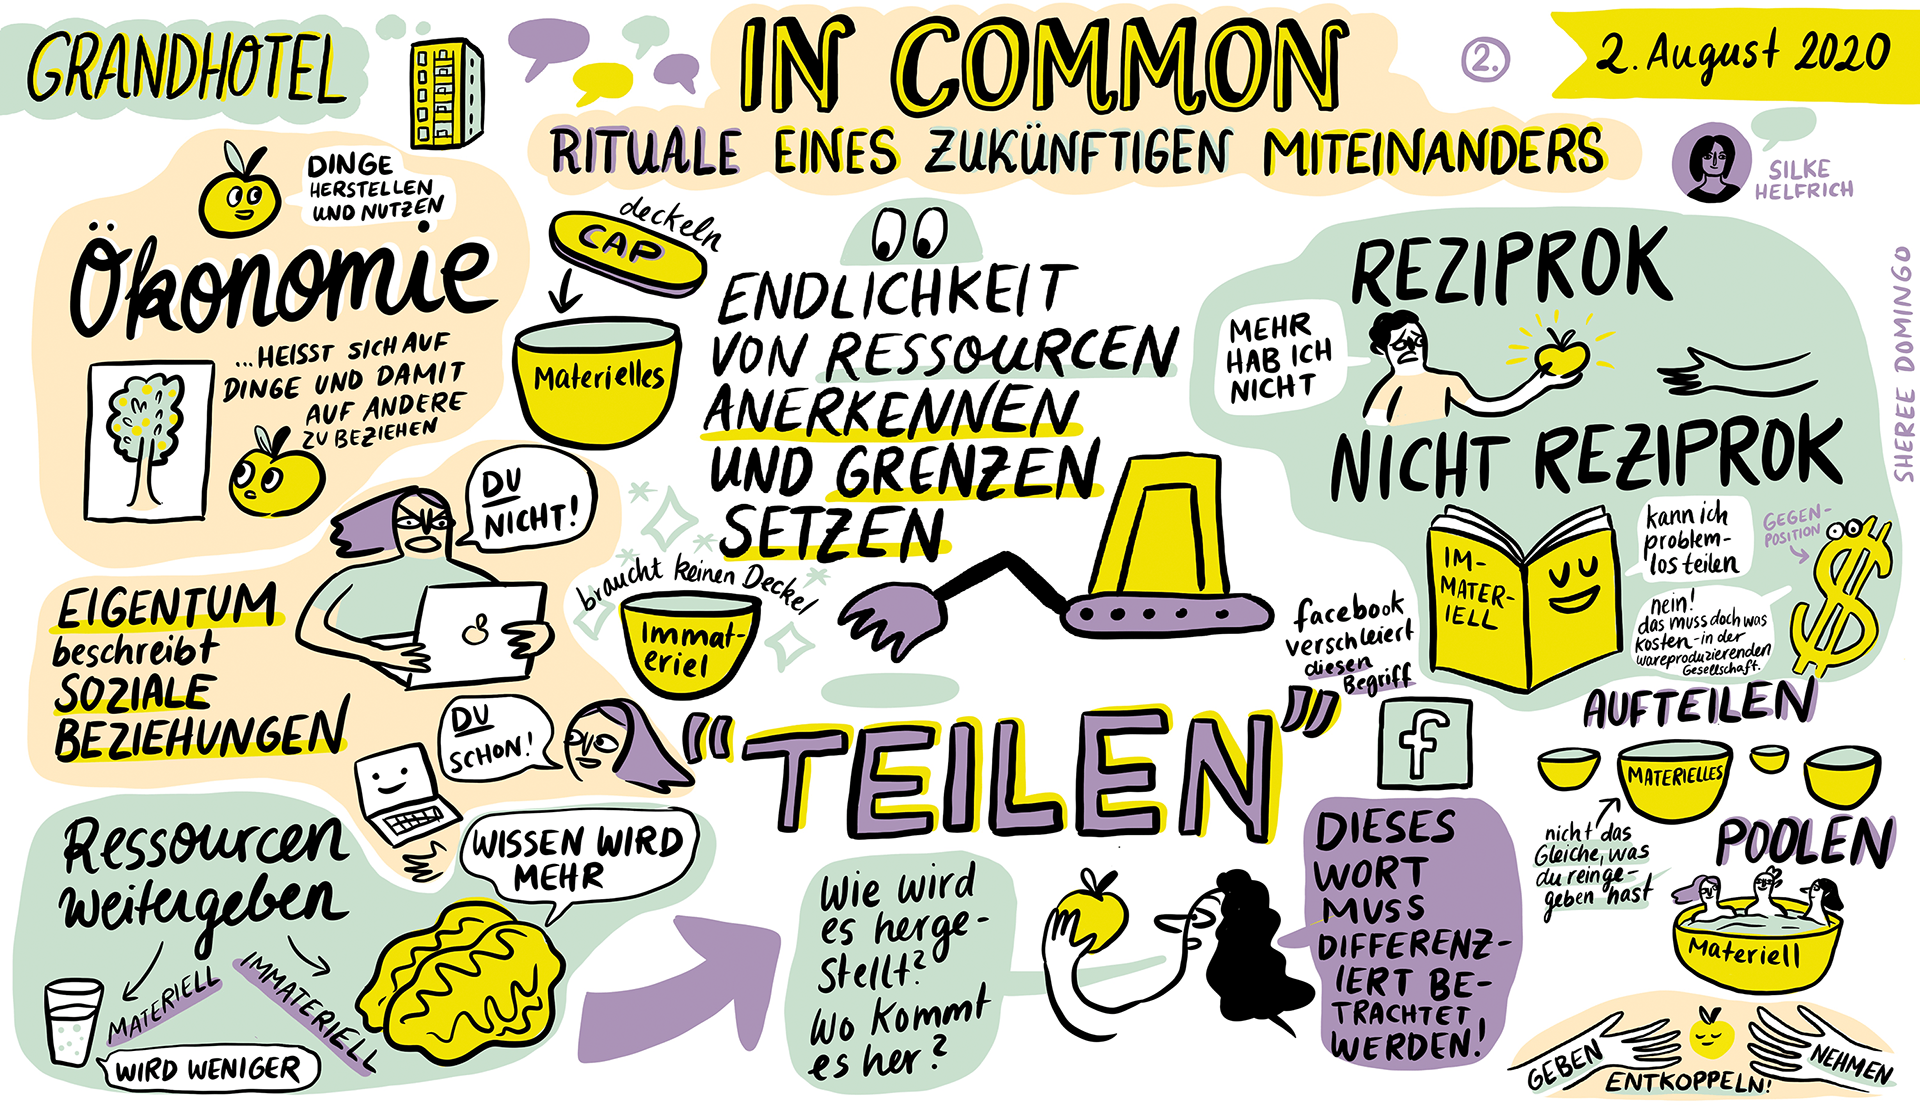 GRANDHOTEL
IN COMMON
RITUALE EINES ZUKÜNFTIGEN MITEINANDERS
2.
2. August 2020
SILKE
HELFRICH
SHEREE DOMINGO
DINGE
HERSTELLEN
UND NUTZEN
Ökonomie
...HEISST SICH AUF
DINGE UND DAMIT
AUF ANDERE
ZU BEZIEHEN
DU
NICHT!
EIGENTUM
beschreibt
SOZIALE
BEZIEHUNGEN
DU
SCHON!
Ressourcen
weitergeben
MATERIELL
WIRD WENIGER
IMMATERIELL
WISSEN WIRD
MEHR
deckeln
CAP
Materielles
ENDLICHKEIT
VON RESSOURCEN
ANERKENNEN
UND GRENZEN
SETZEN
braucht keinen Deckel
Immat-
eriel
"TEILEN"
facebook
verschleiert
diesen
Begriff
f
Wie wird
es herge-
stellt?
Wo kommt
es her?
DIESES
WORT
MUSS
DIFFERENZ-
IERT BE-
TRACHTET
WERDEN!
REZIPROK
MEHR
HAB ICH
NICHT
NICHT REZIPROK
IM-
MATER-
IELL
kann ich
problem-
los teilen
GEGEN-
POSITION
nein!
das muss doch was
kosten - in der
wareproduzierenden
Gesellschaft.
AUFTEILEN
MATERIELLES
nicht das
Gleiche, was
du reinge-
geben hast
POOLEN
Materiell
GEBEN
NEHMEN
ENTKOPPELN!